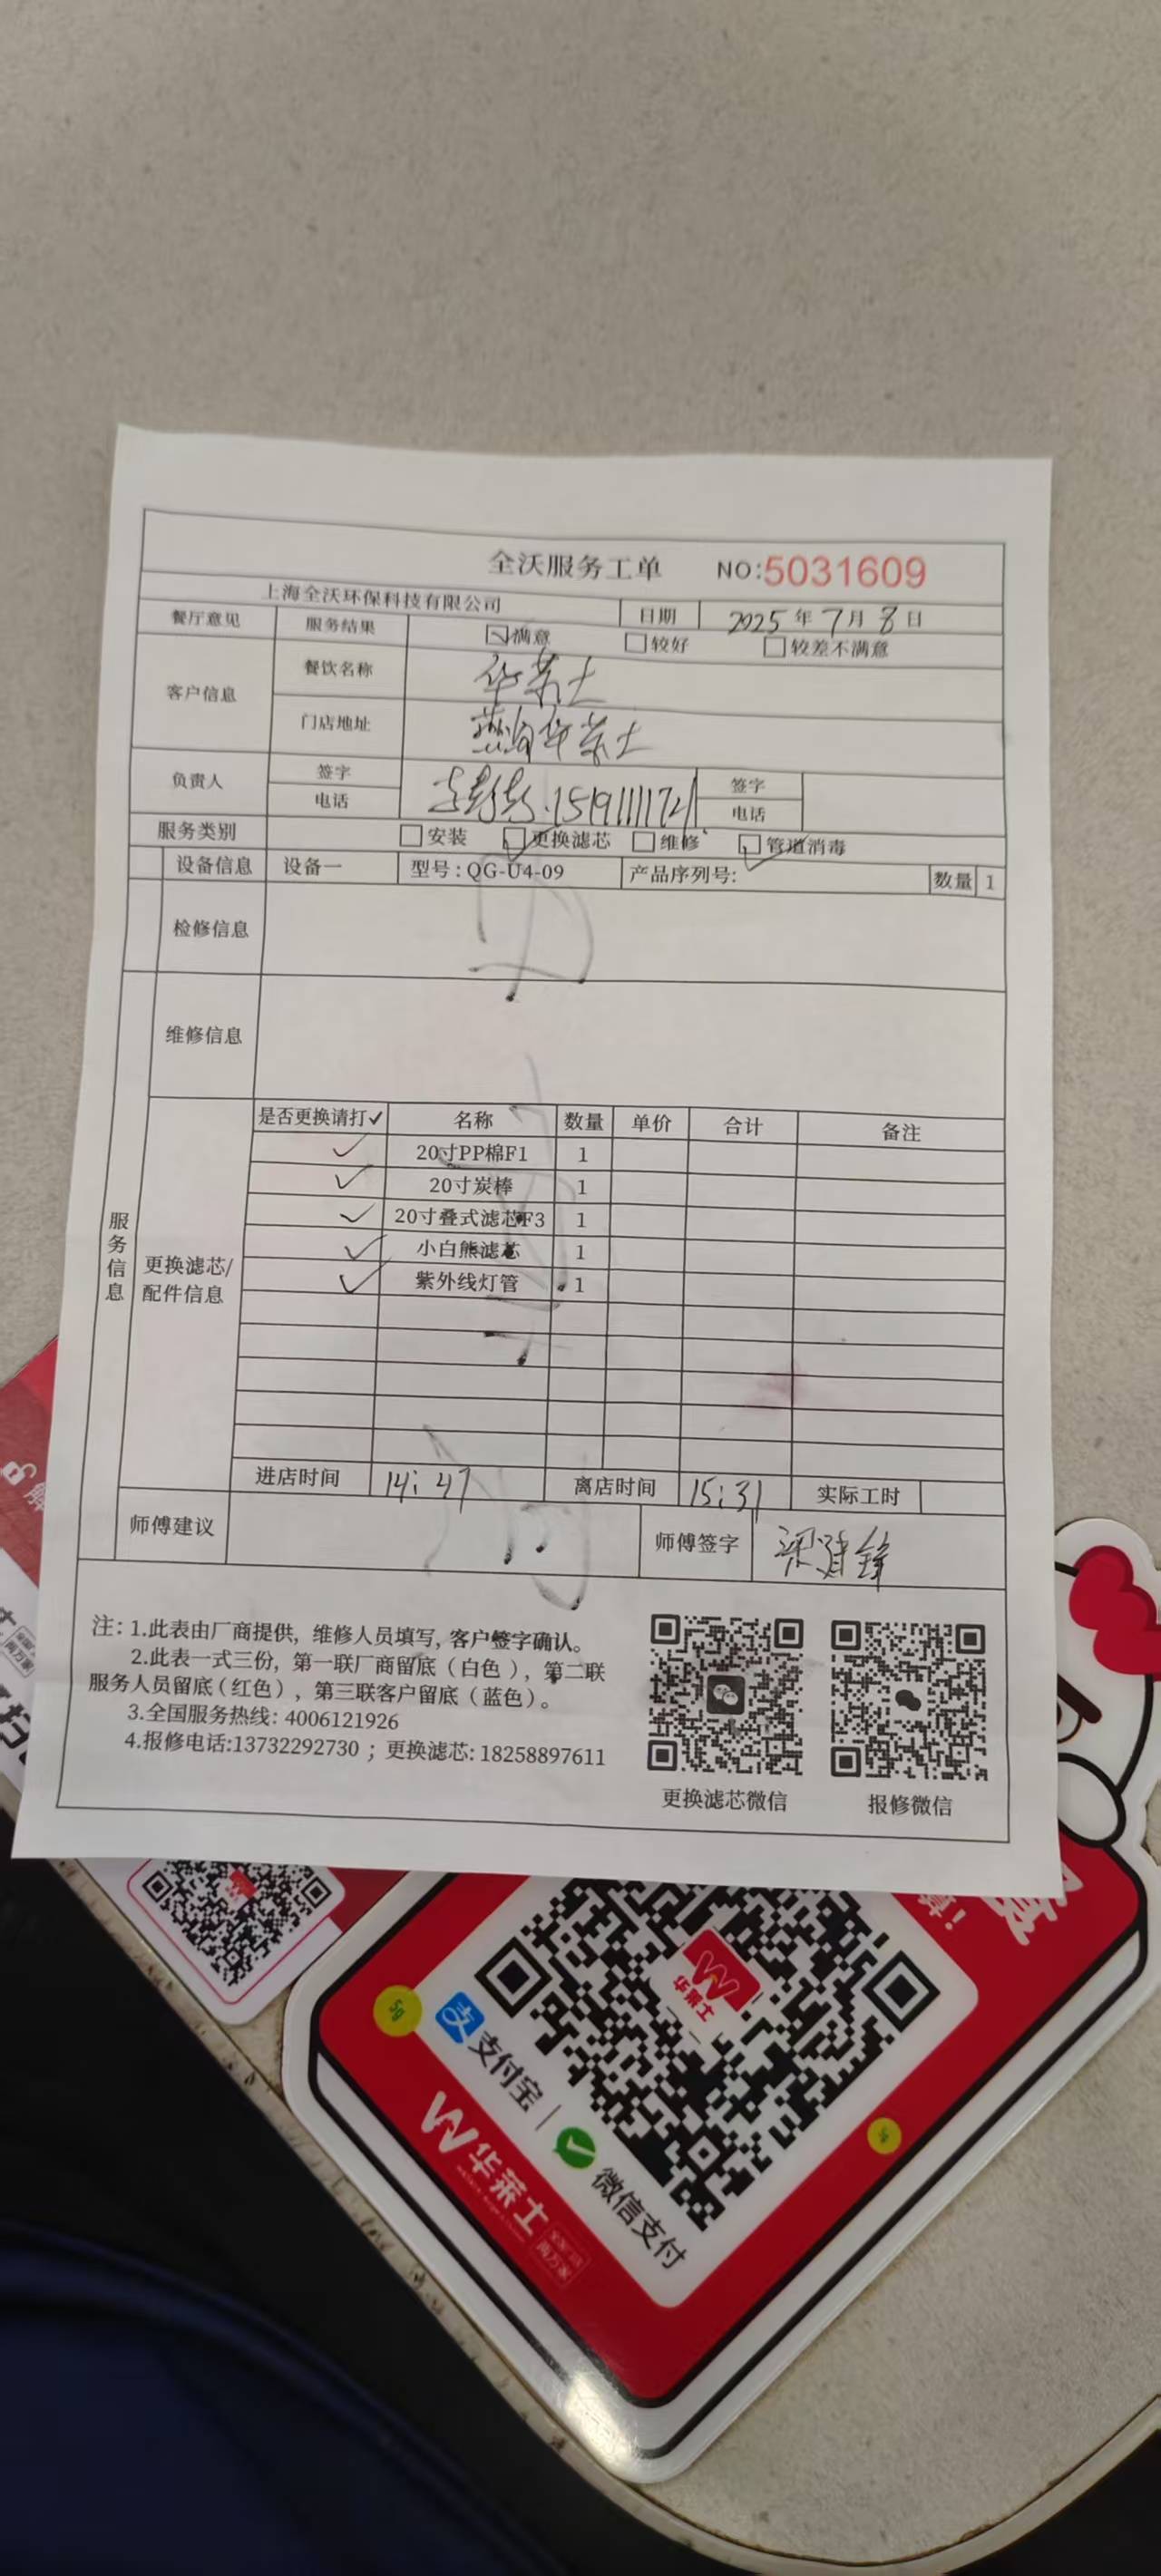 全沃服务工单 NO:5031609
上海全沃环保科技有限公司 日期 2025年7月8日
餐厅意见 服务结果 满意 较好 较差不满意
客户信息 餐饮名称 华莱士
门店地址 华莱士
负责人 签字 签字
电话 15191111721 电话
服务类别 安装 更换滤芯 维修 管道消毒
设备信息 设备一 型号:QG-U4-09 产品序列号: 数量 1
检修信息
维修信息
服务信息
更换滤芯/
配件信息
是否更换请打✓ 名称 数量 单价 合计 备注
✓ 20寸PP棉F1 1
✓ 20寸炭棒 1
✓ 20寸叠式滤芯F3 1
✓ 小白熊滤芯 1
✓ 紫外线灯管 1
进店时间 14:47 离店时间 15:31 实际工时
师傅建议 师傅签字 梁建锋
注: 1.此表由厂商提供, 维修人员填写, 客户签字确认。
2.此表一式三份, 第一联厂商留底 (白色 ), 第二联
服务人员留底 (红色) , 第三联客户留底 (蓝色) 。
3.全国服务热线: 4006121926
4.报修电话:13732292730 ; 更换滤芯: 18258897611
更换滤芯微信 报修微信
华莱士
支付宝 | 微信支付
华莱士